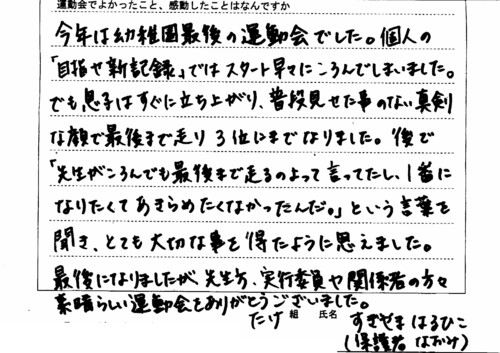 運動会でよかったこと、感動したことはなんですか
今年は幼稚園最後の運動会でした。個人の
「目指せ新記録」ではスタート早々にころんでしまいました。
でも息子はすぐに立ち上がり、普段見せた事のない真剣
な顔で最後まで走り3位にまでなりました。後で
「先生がころんでも最後まで走るのよって言ってたし、1番に
なりたくてあきらめたくなかったんだ。」という言葉を
聞き、とても大切な事を得たように思えました。
最後になりましたが、先生方、実行委員や関係者の方々
素晴らしい運動会をありがとうございました。
たけ 組 氏名 すぎやま はるひこ
(保護者 なおみ)